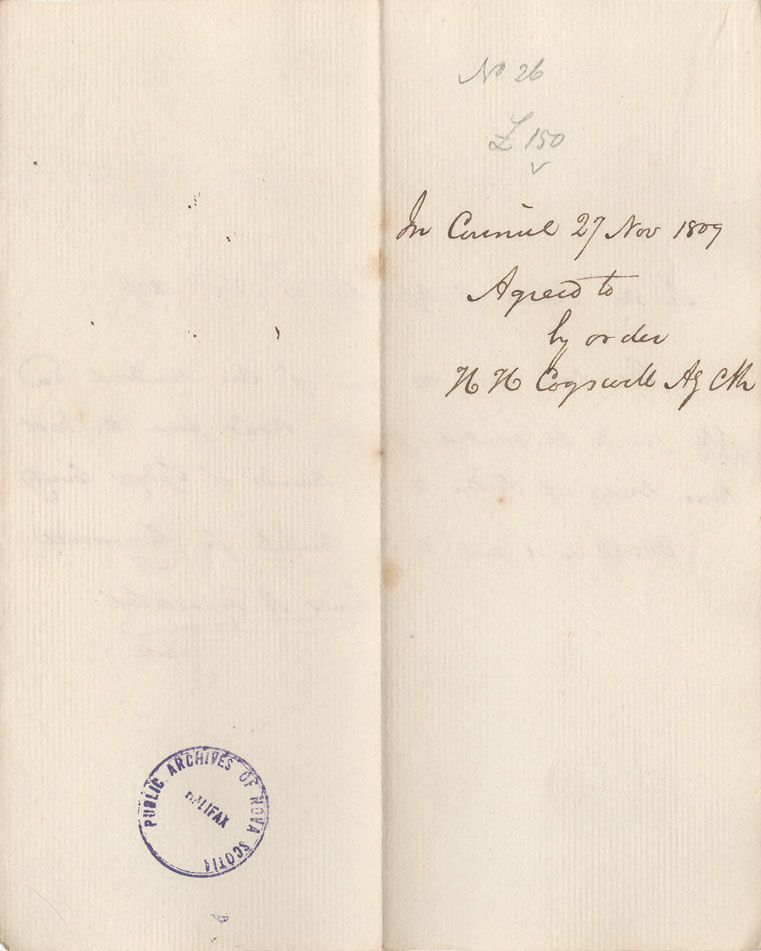 No 26
£ 150
In Council 27 Nov 1809
Agreed to
by order
H H Cogswell Ag Clk
PUBLIC ARCHIVES OF NOVA SCOTIA
HALIFAX